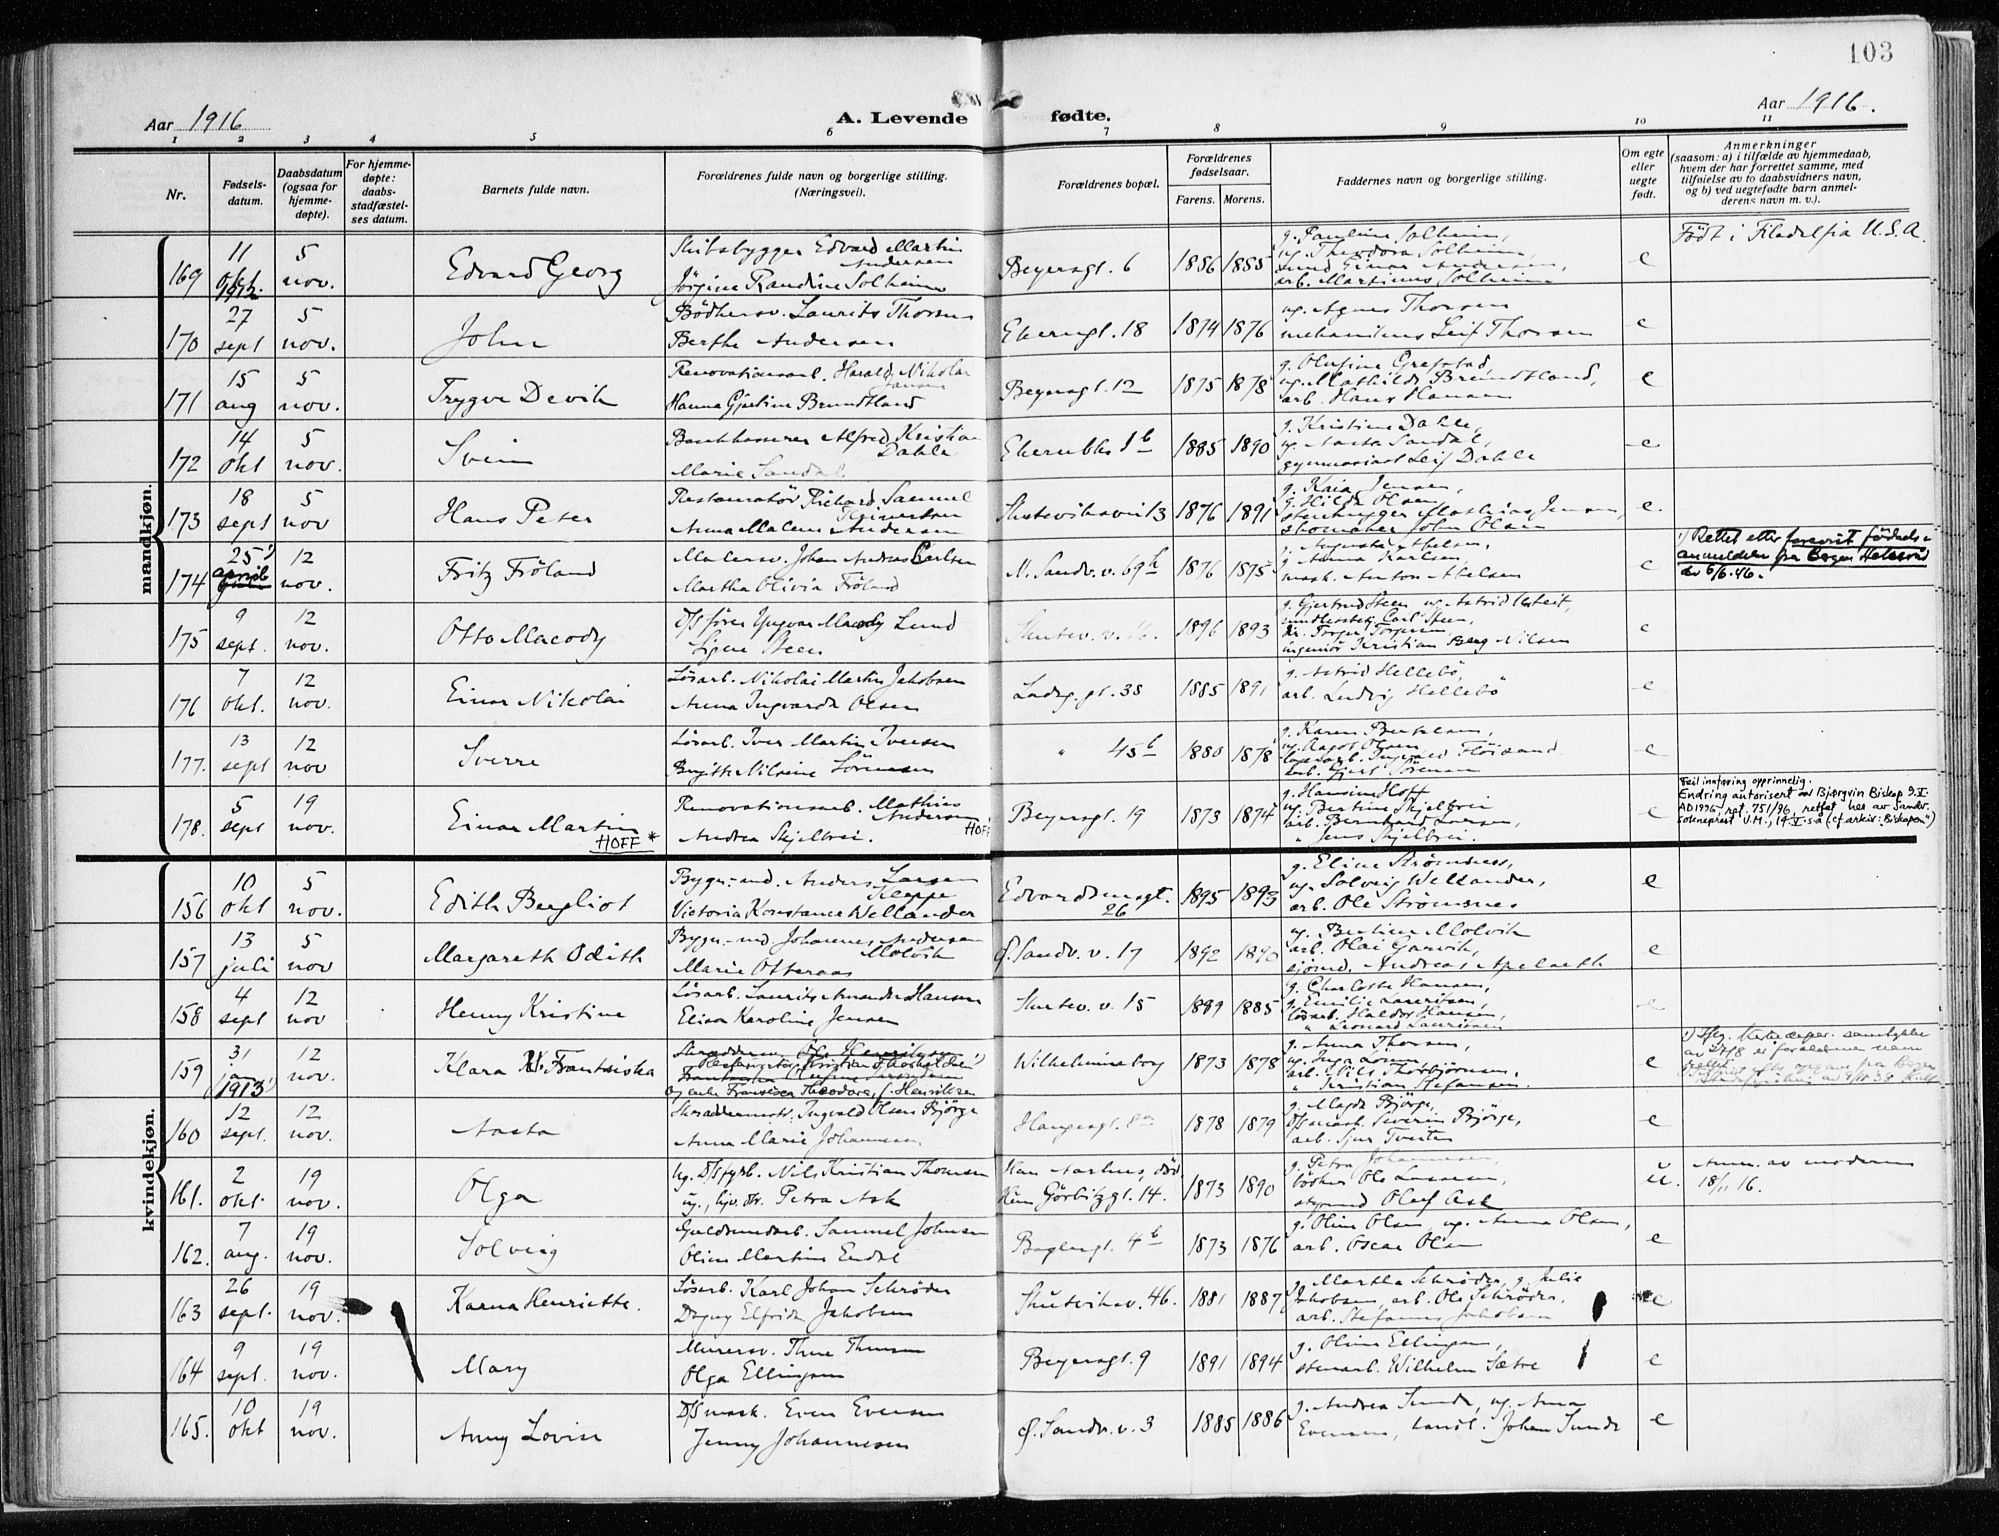 103
Aar 1916
A. Levende fødte.
Aar 1916.
1 2 3 4 5 6 7 8 9 10 11
Nr.
Fødsels-
datum.
Daabsdatum
(ogsaa for
hjemme-
døpte).
For hjemme-
døpte:
daabs-
stadfæstel-
ses datum.
Barnets fulde navn.
Forældrenes fulde navn og borgerlige stilling.
(Næringsvei).
Forældrenes bopæl.
Forældrenes
fødselsaar.
Farens. Morens.
Faddernes navn og borgerlige stilling.
Om egte
eller
uegte
født.
Anmerkninger
(saasom: a) i tilfælde av hjemmedaab,
hvem der har forrettet samme, med
tilføielse av to daabsvidners navn,
og b) ved uegtefødte barn anmel-
derens navn m. v.).
mandkjøn.
169 11 okt. 1912 5 nov. Edvard Georg
Skibsbygger Edvard Martin Andersen
Jørgine Randine Solheim
Beyersgt. 6 1886 1885
g. Pauline Solheim,
ug. Theodora Solheim,
Einar Andersen,
arb. Martinus Solheim
e
Født i Filadelfia U.S.A.
170 27 sept 5 nov. John
Bødkersv. Laurits Thorsen
Berthe Andersen
Ekerengt. 18 1874 1876
ug. Agnes Thorsen
Leif Thorsen
e
171 15 aug 5 nov. Trygve Devik
Renovationsarb. Harald Nikolai Jansen
Hanna Gjertine Brundtland
Beyersgt. 12 1875 1878
g. Olufine Grefstad,
ug. Mathilde Brundtland,
arb. Hans Hansen
e
172 14 okt 5 nov. Svein
Bankkasserer Alfred Kristian Dahle
Marie Sandal
1b 1885 1890
g. Kristine Dahle,
ug. Aasta Sandal,
gymnasiast Leif Dahle
e
173 18 sept 5 nov Hans Peter
Restauratør Richard Samuel
Anna Malene Andersen
Skuteviksvei 13 1876 1891
g. Kaia Jensen,
g. Hilda Olsen
stenhugger Mathias Jensen,
skomaker John Olsen
e.
174 25¹) april 12 nov. Fritz Fröland
Malersv. Johan Andreas Carlsen
Martha Olivia Fröland
N. Sandv. v. 69b 1876 1875
g. Augusta Abelsen,
g. Anna Karlsen
mask. Anton Abelsen
e
¹) Rettet etter
anmeldelse fra Bergen Helseråd
av 6/6.46.
175 9 sept. 12 nov. Otto Macody
D/S fører Yngvar Macody Lund
Signe Steen
Skutev. v. 16. 1896 1893
g. Gjertrud Steen ug. Astrid
Carl Steen,
Torger Torgersen
ingeniør Kristian Berg Nilsen
e
176 7 okt. 12 nov. Einar Nikolai
Løsarb. Nikolai Martin Jakobsen
Anna Ingvarda Olsen
Ladeg. gt. 38 1885 1891
g. Astrid Hellebö,
arb. Ludvig Hellebö
e
177. 13 sept 12 nov Sverre
Løsarb. Iver Martin Iversen
Birgithe Nilsine Sörensen
" 45b 1880 1878
g. Karen
ug. Aagot Olsen
Ingvald
arb. Gjert Sörensen
e
178. 5 sept 19 nov. Einar Martin
HOFF *
Renovationsarb. Mathias Andersen HOFF
Andrea Skjelbrei.
Beyersgt. 19 1873 1874
g. Hansine Hoff
ug. Bertine Skjelbrei
arb. Bernhard Larsen,
" Jens Skjelbrei.
e
Feil innføring opprinnelig.
Endring autorisert av Bjørgvin Biskop 9.V.
AD1996, ref. 751/96, rettet her av Sandv.
sokneprest U.M., 14.V. s.å (cf. arkiv: "Biskopen")
kvindekjøn.
156 10 okt 5 nov. Edith Bergliot
Bygn.-md. Anders Larsen Kleppe
Victoria Konstance Wellander
Edvardsensgt. 26 1895 1893
g. Eline Strømsnes,
ug. Solveig Wellander,
arb. Ole Strømsnes
e
157 13 juli 5 nov Margareth Odith
Bygn.-md. Johannes Andersen Molvik
Marie Otteraas
Ø. Sandv. v. 17 1892 1890
ug. Bertine Molvik
arb. Olai Garvik,
sjømd. Andreas Apelseth
e
158 4 sept 12 nov Henny Kristine
Løsarb. Laurits Amandus Hansen
Elisa Karoline Jensen
Skutev. v. 15 1889 1885
g. Charlotte Hansen,
g. Emilie Lauritsen,
løsarb. Haldor Hansen,
" Leonard Lauritsen
e
159 31 jan 1913¹) 12 nov. Klara Frantsiska
Kristian Thorkildsen¹)
og enke Fransisca Theodora, f. Henriksen
Wilhelmineborg 1873 1878
g. Anna Thorsen,
ug. Inga Losen,
arb. Nils Thorbjörnsen,
" Kristian Stefansen.
e
160 12 sept. 12 nov. Aasta
Skreddermest. Ingvald Olsen Bjørge
Anna Marie Johannesen
Haugesgt. 8a 1878 1879
g. Magda Bjørge,
D/S mask. Severin Bjørge,
arb. Sjur Tveiten
e
161. 2 okt. 19 nov. Olga
ug. D/S fyrb. Nils Kristian Thomsen
ug., hjv. tr. Petra Ask
Han Aarhus, død
Hun Görbitzgt. 14. 1873 1890
g. Petra Johannesen,
bødker Ole
styrmd Oluf Ask
u.
Anm. av moderen
18/11 16.
162. 7 aug. 19 nov. Solveig
Guldsmedarb. Samuel Johnsen
Oline Martine Endal
Baglergt. 4b 1873 1876
g. Oline Olsen, ug. Anna Olsen,
arb. Oscar Olsen
e
163 26 sept. 19 nov. Karna Henriette.
Løsarb. Karl Johan Schrøder
Dagny Elfrida Jakobsen
Skutviksv. 46. 1881 1887
g. Martha Schrøder, g. Julie
Jakobsen, arb. Ole Schrøder,
arb. Stefanus Jakobsen
e
164 9 sept. 19 nov. Mary
Murersv. Thue Thuesen
Olga Ellingsen
Beyersgt. 9 1891 1894
g. Oline Ellingsen,
stenarb. Wilhelm Sætre
e
165. 10 okt 19 nov. Anny Lovise
D/S mask. Even Evensen
Jenny Johannesen
Ø. Sandv. v. 3 1885 1886
g. Andrea Sunde, ug. Anna
Evensen, handl. Johan Sunde
e